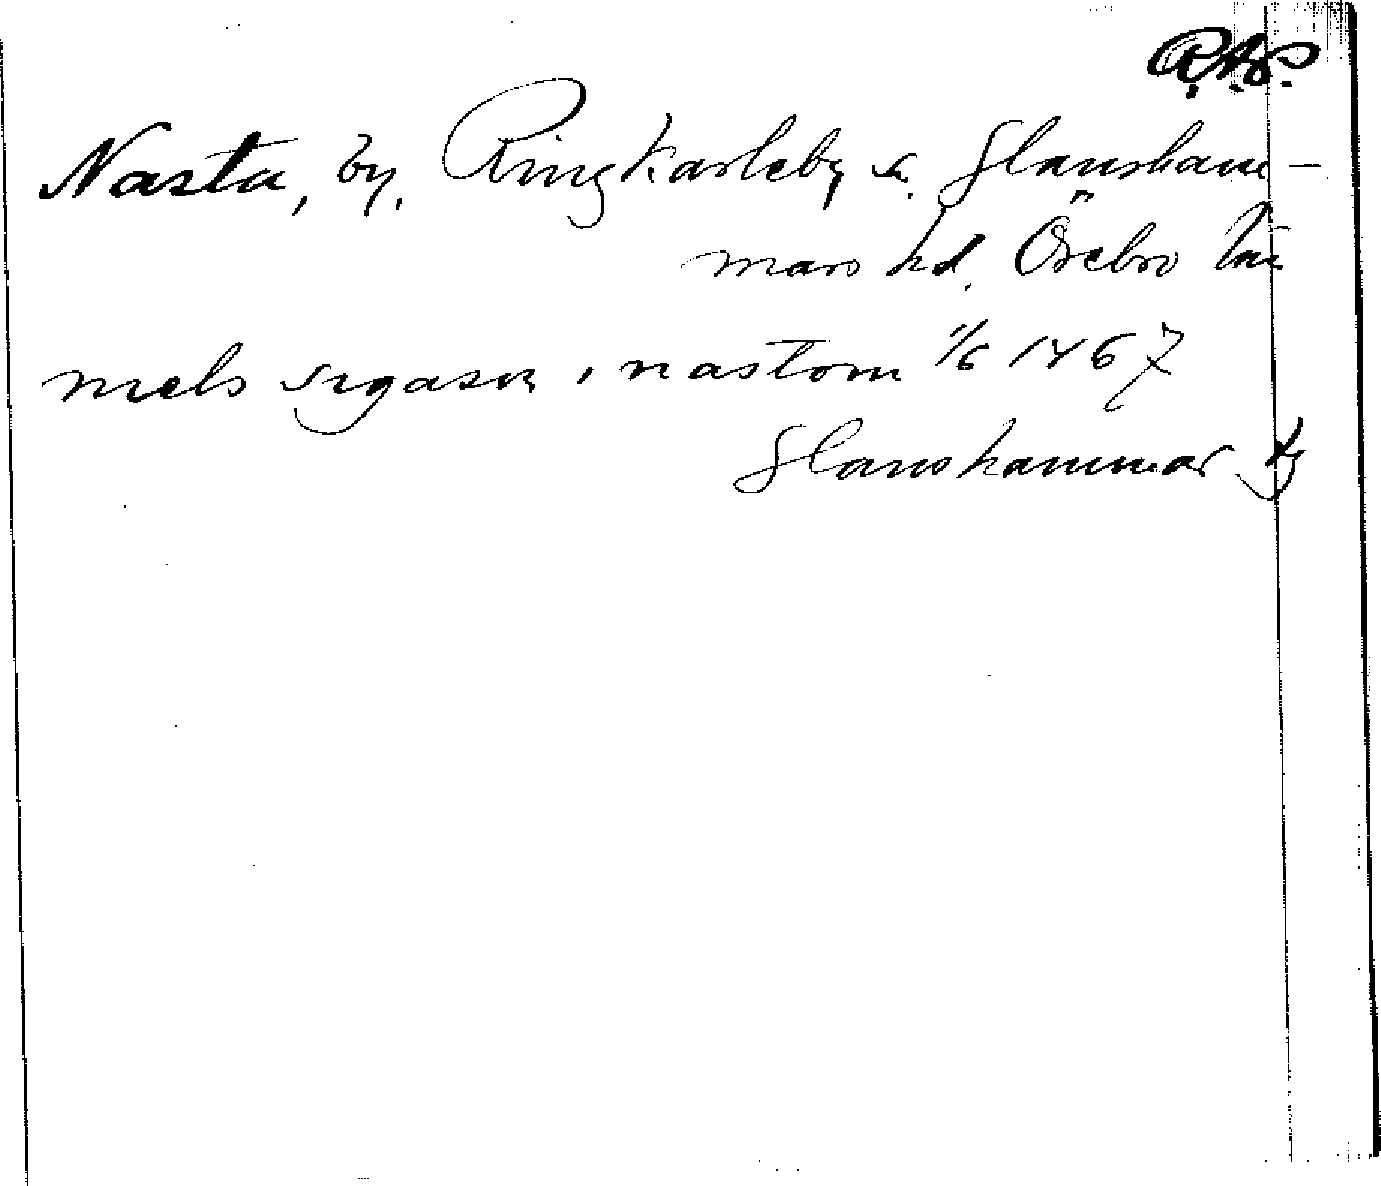 R.A.P.
Nasta, by, Ringkarleby s. Glansham-
mars hd. Örebro län
niels sigason i nastom 1/6 1467
Glanshammar